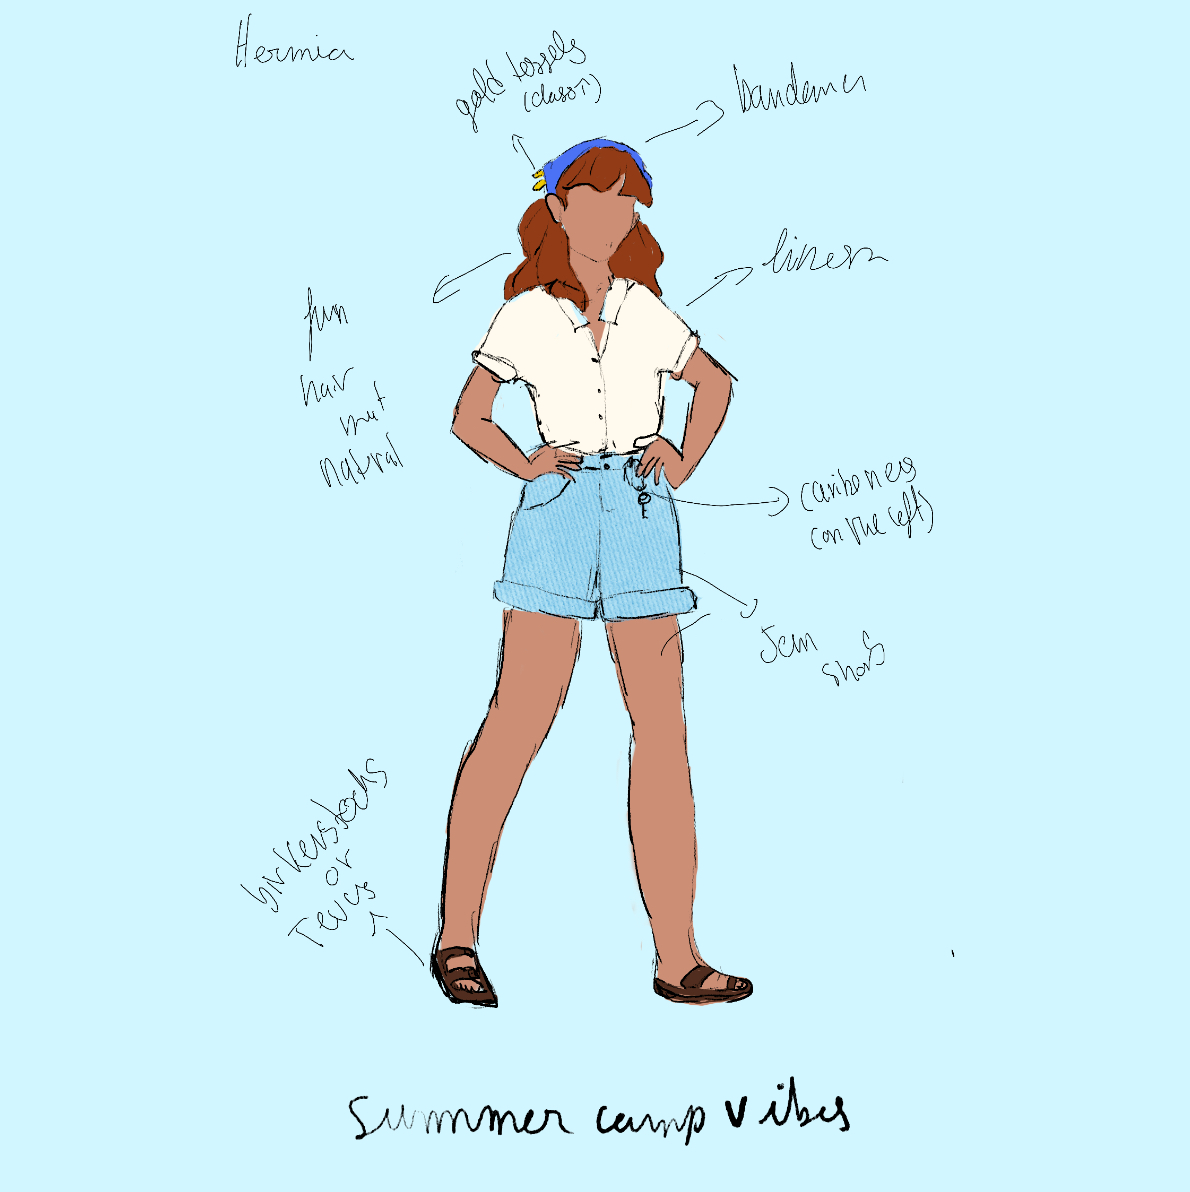 Hermia
gold tassels
bandana
linen
fun
hair
but
natural
(on the left)
Jean
shorts
birkenstocks
or
Tevas
summer camp vibes